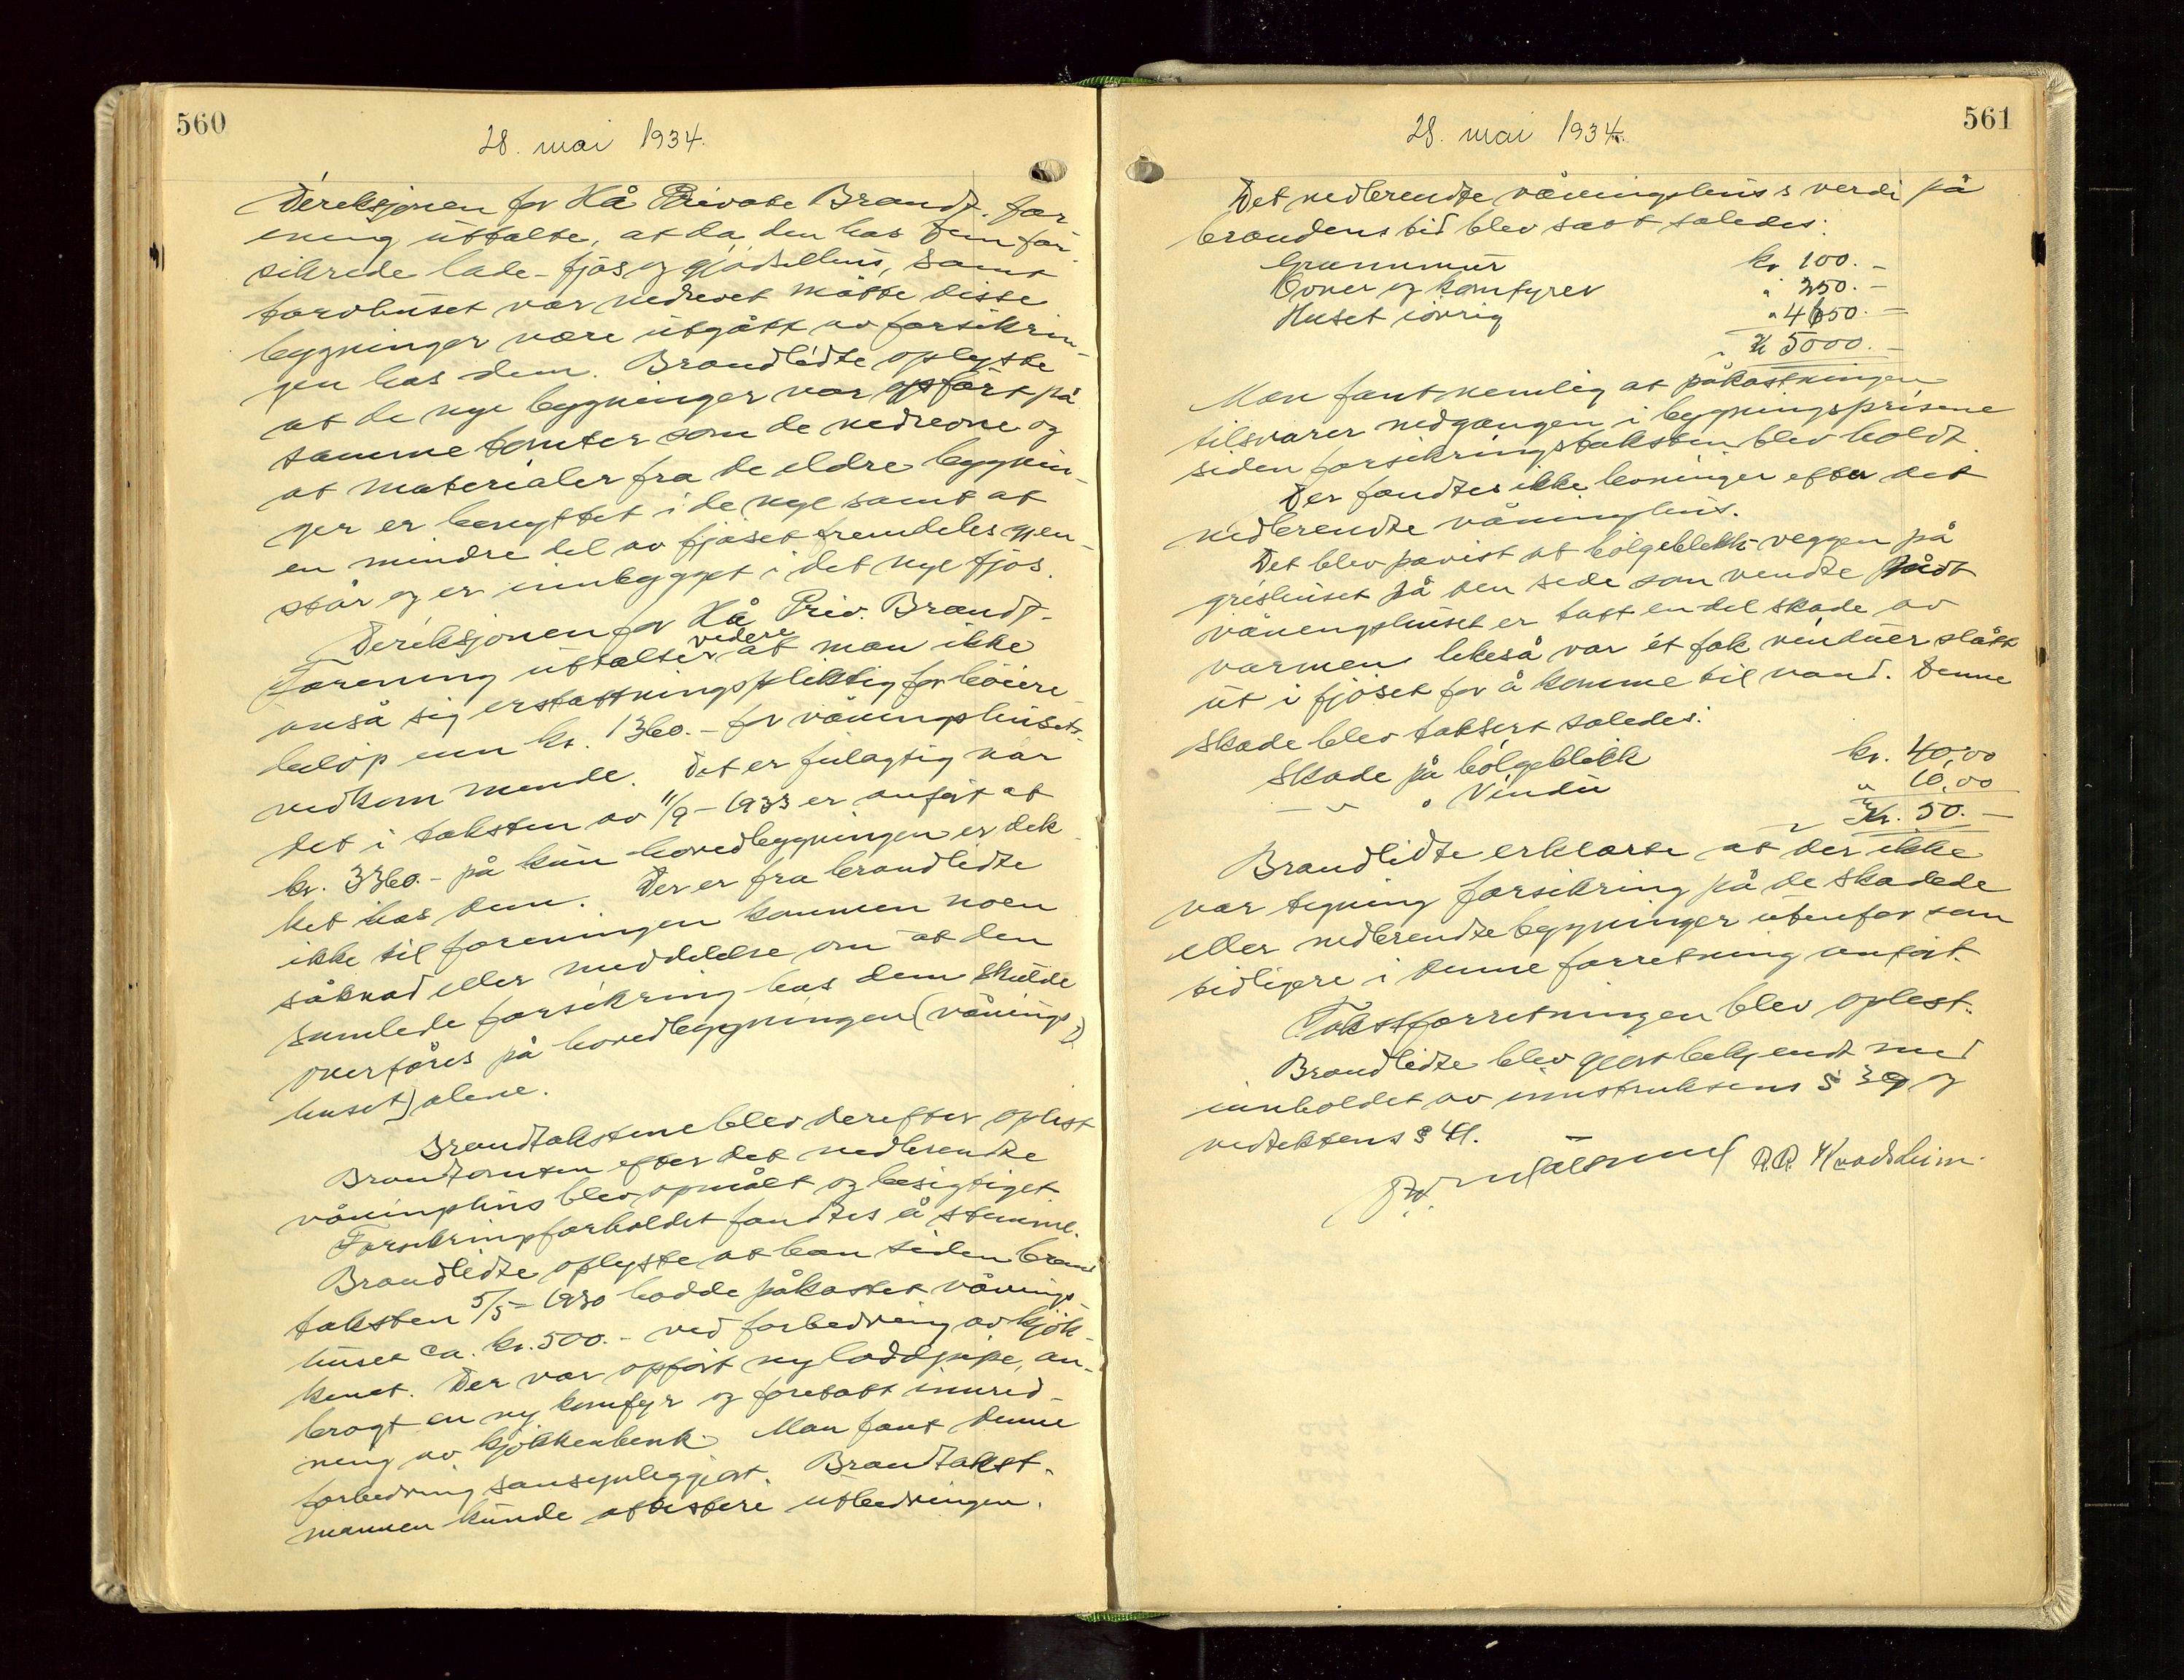 560
28. mai 1934.
Direksjonen for Hå Private Brandf. for
ening uttalte, at da den hos dem for-
sikrede lade- fjøs og gjødselhus, samt
torvhuset var nedrevet måtte disse
bygninger være utgått av forsikrin-
gen hos dem. Brandlidte oplyste
at de nye bygninger var opført på
samme tomter som de nedrevne og
at materialer fra de eldre bygnin-
ger er benyttet i de nye samt at
en mindre del av fjøset fremdeles gjen-
står og er innbygget i det nye fjøs.
Direksjonen for Hå Priv. Brandf-
Forening uttalte videre at man ikke
anså sig erstattningspliktig for høiere
beløp enn kr. 1360.- for våningshusets
vedkommende. Det er feilagtig når
det i taksten av 11/9-1933 er anført at
kr. 3360.- på kun hovedbygningen er dek
ket hos dem. Der er fra brandlidte
ikke til foreningen kommen noen
søknad eller meddelelse om at den
samlede forsikring hos dem skulde
overføres på hovedbygningen (vånings
huset) alene.
Brandtakstene blev derefter oplest
Brandtomten efter det nedbrendte
våningshus blev opmålt og besigtiget.
Forsikringsforholdet fandtes å stemme.
Brandlidte oplyste at han siden brand
taksten 5/5-1930 hadde påkostet vånings-
huset ca. kr. 500.- ved forbedring av kjøk-
kenet. Der var opført ny loddpipe, an-
bragt en ny komfyr og foretatt innred-
ning av kjøkkenbenk. Man fant denne
forbedring sansynliggjort. Brandtakst-
mannen kunde attestere utbedringen.
561
28. mai 1934.
Det nedbrendte våningshus's verdi på
brandens tid blev satt således:
Grunnmur kr 100.-
Ovner og komfyrer " 250.-
Huset iøvrig " 4650.-
Kr 5000.-
Man fant nemlig at påkostningen
tilsvarer nedgangen i bygningsprisene
siden forsikringstaksten blev holdt.
Der fandtes ikke levninger efter det
nedbrendte våningshus.
Det blev påvist at bølgeblikk-veggen på
grishuset på den side som vendte mot
våningshuset er tatt en del skade av
varmen likeså var et fak vinduer slått
ut i fjøset for å komme til vand. Denne
skade blev taksert således:
Skade på bølgeblikk kr. 40,00
— " — " Vindu " 10,00
Kr. 50.-
Brandlidte erklærte at der ikke
var tegning forsikring på de skadede
eller nedbrendte bygninger utenfor som
tidligere i denne forretning anført.
Takstforretningen blev oplest.
Brandlidte blev gjort bekjendt med
innholdet av innstruksens § 39 og
vedtektens § 41.
P.P. Kvadsheim.